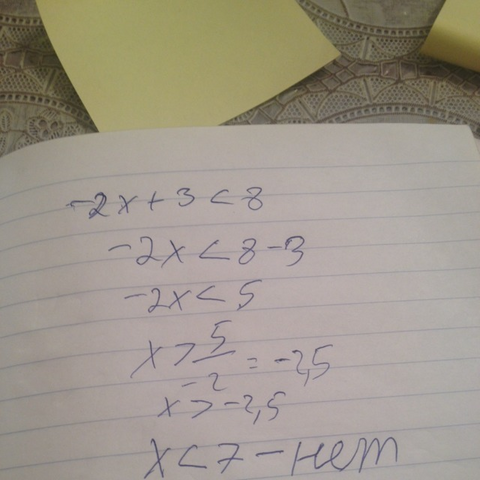 -2x + 3 < 8
-2x < 8 - 3
-2x < 5
x > 5/-2 = -2,5
x > -2,5
x < 7 - нет